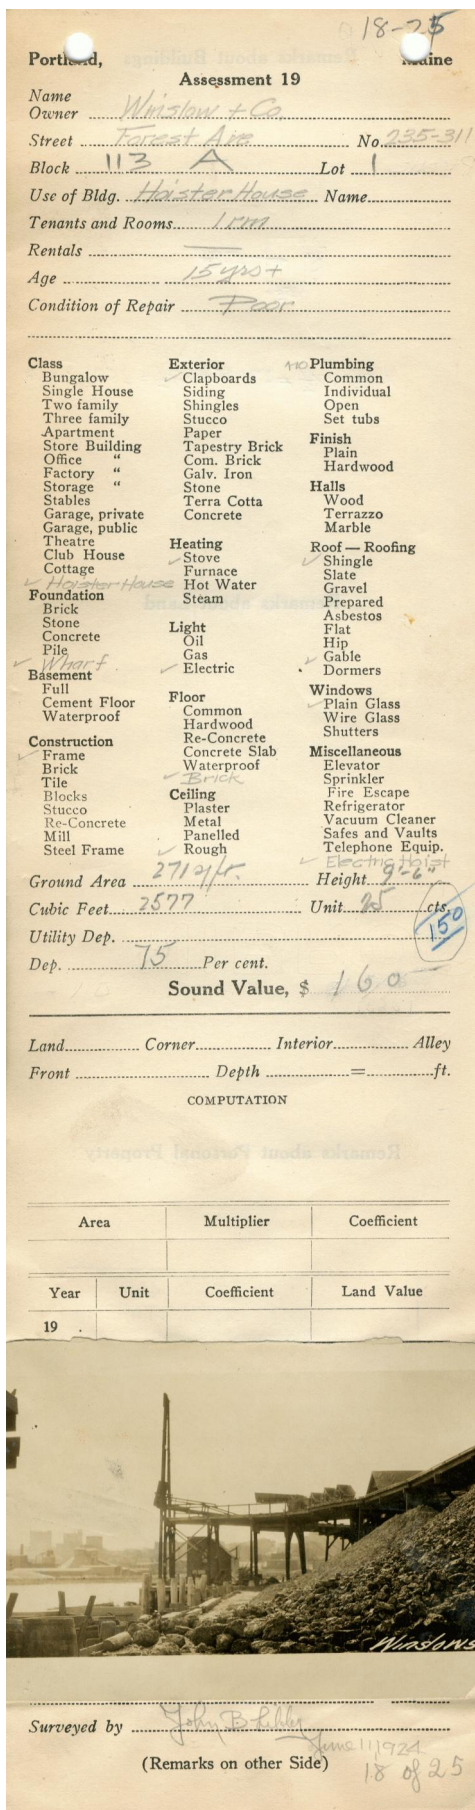 18-25
Portland, Maine
Assessment 19
Name
Owner Winslow + Co.
Street Forest Ave No. 235-311
Block 113 A Lot 1
Use of Bldg. Hoister House Name
Tenants and Rooms 1 rm
Rentals —
Age 15 yrs +
Condition of Repair Poor
Class
Bungalow
Single House
Two family
Three family
Apartment
Store Building
Office "
Factory "
Storage "
Stables
Garage, private
Garage, public
Theatre
Club House
Cottage
✓ Hoister House
Foundation
Brick
Stone
Concrete
Pile
✓ Wharf
Basement
Full
Cement Floor
Waterproof
Construction
✓ Frame
Brick
Tile
Blocks
Stucco
Re-Concrete
Mill
Steel Frame
Exterior
✓ Clapboards
Siding
Shingles
Stucco
Paper
Tapestry Brick
Com. Brick
Galv. Iron
Stone
Terra Cotta
Concrete
Heating
✓ Stove
Furnace
Hot Water
Steam
Light
Oil
Gas
✓ Electric
Floor
Common
Hardwood
Re-Concrete
Concrete Slab
Waterproof
✓ Brick
Ceiling
Plaster
Metal
Panelled
✓ Rough
no Plumbing
Common
Individual
Open
Set tubs
Finish
Plain
Hardwood
Halls
Wood
Terrazzo
Marble
Roof — Roofing
✓ Shingle
Slate
Gravel
Prepared
Asbestos
Flat
Hip
✓ Gable
Dormers
Windows
✓ Plain Glass
Wire Glass
Shutters
Miscellaneous
Elevator
Sprinkler
Fire Escape
Refrigerator
Vacuum Cleaner
Safes and Vaults
Telephone Equip.
✓ Electric Hoist
Ground Area 271 Height 9'-6"
Cubic Feet 2577 Unit 25 cts.
150
Utility Dep.
Dep. 75 Per cent.
Sound Value, $ 160
Land Corner Interior Alley
Front Depth = ft.
COMPUTATION
Area Multiplier Coefficient
Year Unit Coefficient Land Value
19
Winslows
Surveyed by John B
June 11 1924
(Remarks on other Side)
18 of 25